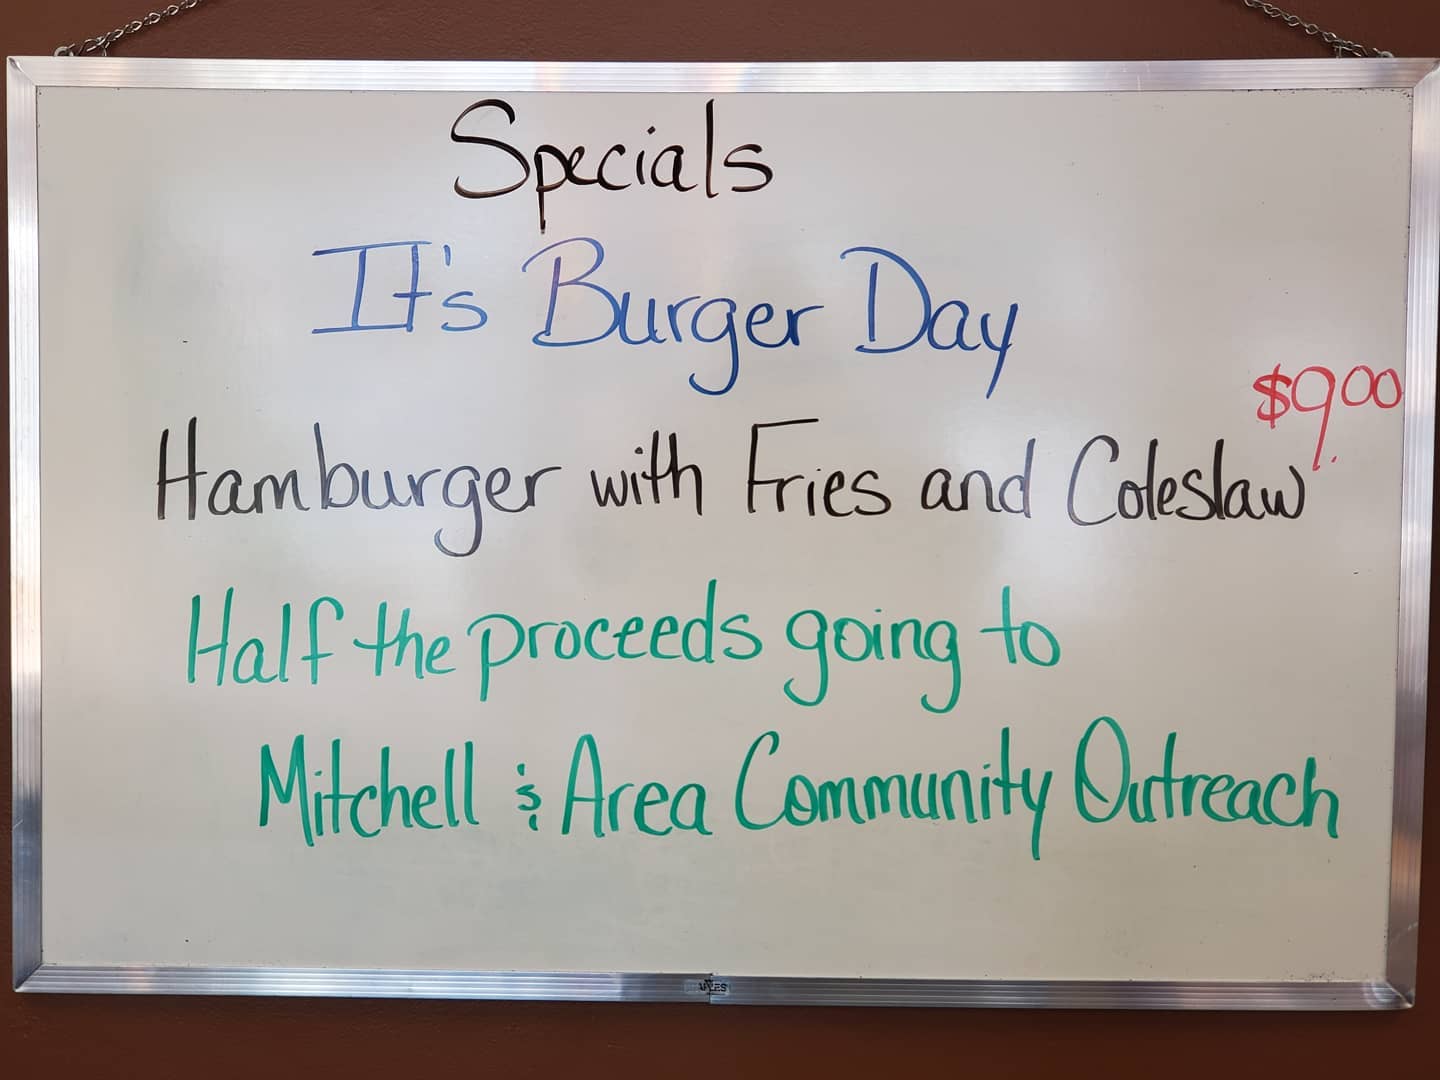 Specials
It's Burger Day
$9.00
Hamburger with Fries and Coleslaw
Half the proceeds going to
Mitchell & Area Community Outreach